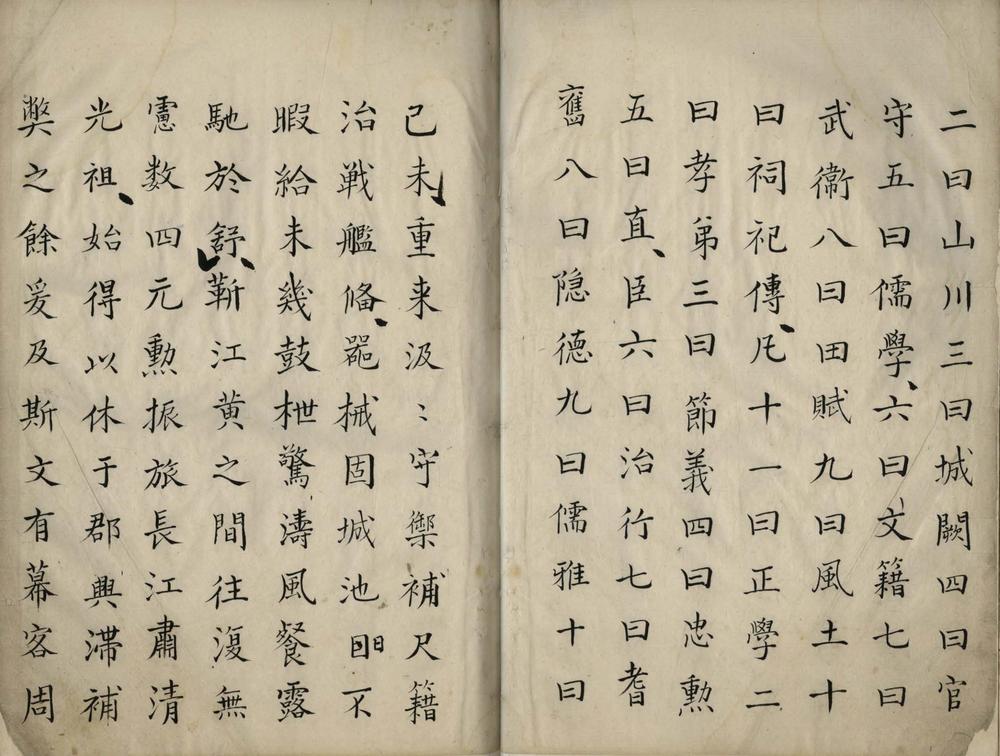 二曰山川三曰城闕四曰官
守五曰儒學六曰文籍七曰
武衛八曰田賦九曰風土十
曰祠祀傳凡十一曰正學二
曰孝弟三曰節義四曰忠勲
五曰直臣六曰治行七曰耆
舊八曰隐德九曰儒雅十曰
己未重来汲〻守禦補尺籍
治戦艦俻噐械固城池日不
暇給未幾鼓枻驚濤風餐露
馳於舒蘄江黄之間往復無
慮数四元勲振旅長江肅清
光祖始得以休于郡興滞補
獘之餘爰及斯文有幕客周